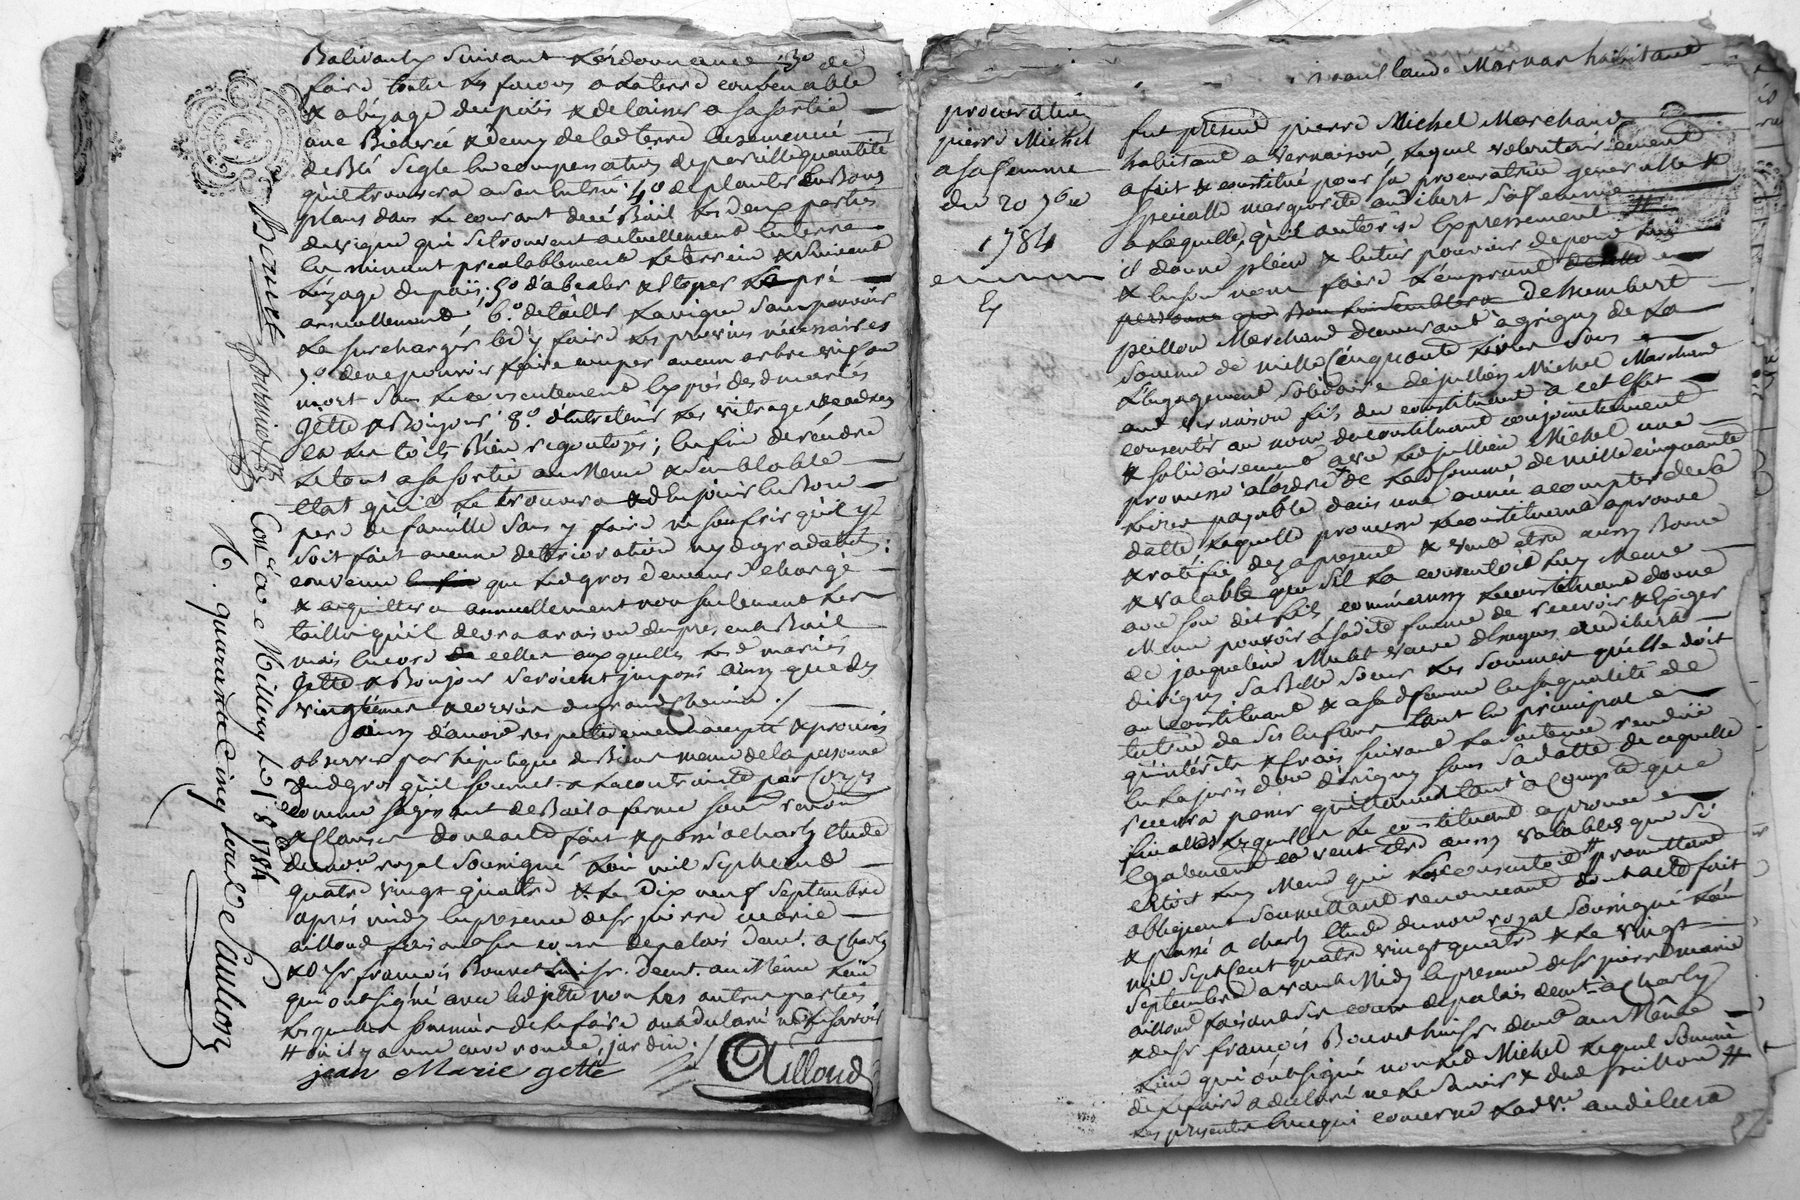 Balivaux suivant l'ordonnance; 3o de
faire toutes les facons a la terre convenable
& a l'uzage du païs & de laisser a sa sortie
une Bicherée & demy de lad terre ensemencé
de Blé segle en compensation de pareille quantité
qu'il trouvera a son entrée; 4o de planter en Bons
plans dans le courant de ce Bail les deux parties
de vigne qui se trouvent actuellement en terre
en minant prealablement le terrein & suivant
l'uzage du païs; 5o d'abealer & etoper le pré
annuellement; 6o de tailler la vigne sans pouvoir
la surcharger et d'y faire les provins nécessaires
7o de ne pouvoir faire couper aucun arbre vif ou
mort sans le consentement exprès desd mariés
Gette & Bonjour; 8o d'entretenir les vitrages
et les toits Bien regoutoyés; enfin de rendre
le tout a sa sortie au meme & semblable
etat qu'il le trouvera & d'en jouir en Bon
pere de famille sans y faire ne soufrir qu'il y
soit fait aucune deterioration ny degradation;
convenu que led gros demeure chargé
& acquittera annuellement non seulement les
tailles qu'il devra a raison du present Bail
mais encore celles auxquelles lesd mariés
Gette & Bonjour seroient imposés ainsy que les
vingtiemes & corvées du grand chemin./
ainsy d'accord respectivement accepté & promis
observer par hipoteque de Biens meme de la personne
dud gros qu'il soumet a la contrainte par Corps
comme s'agissant de Bail a ferme soum renon
& Clauses dont acte fait & passé a charly etude
du nore royal soussigné l'an mil sept cent
quatre vingt quatre & le dix neuf septembre
après midy en presence de sr pierre marie
ailloud faisant a sa cour de palais demt. a charly
& de sr françois Bouvet huissr. demt. au Même lieu
qui ont signé avec led jette non les autres parties
lesquelles sommées de le faire ont declaré ne le savoir
# où il y a une cuve ronde, jardin./
jean Marie gette
Ailloud
Bouvet
fournier
Conlé a Millery le 21 7bre 1784
R. quarante cinq sols Saulon
habitant
procuration
pierre Michel
a sa femme
du 20 7bre
1784
fut présent pierre Michel Marchand
habitant a vernaison, lequel volontairement
a fait & constitué pour sa procuratrice generalle &
specialle marguerite audibert sa femme
a laquelle, qu'il autorise expressement
il donne plein & entier pouvoir de pour lui
& en son nom faire l'emprunt
personne que Bon lui semblera de humbert
peillon Marchand demeurant à grigny de la
somme de mille cinquante livres sous
l'engagement solidaire de jullien Michel Marchand
aud vernaison fils du constituant à cet effet
consentir au nom du constituant conjointement
& solidairement avec led jullien Michel une
promesse a l'ordre de lad somme de mille cinquante
livres payable dans une année a compter de sa
datte laquelle promesse le constituant aprouve
& ratifie dez a present & veut etre aussy Bonne
& valable que s'il la consentoit luy Meme
avec son dit fils, comme aussy le constituant donne
Meme pouvoir a sadite femme de recevoir & exiger
de jacqueline Mulet veuve d'hugues audibert
d'irigny sa Belle sœur les sommes qu'elle doit
au constituant & a sad femme en sa qualité de
tutrice de ses enfans tant en principal
qu'intérêts & frais suivant la sentence rendüe
en la jurisdon d'irigny sous sa datte de ce quelle
recevra passer quittances tant à Compte que
finalles lesquelles le constituant aprouve
egalement et veut etre aussy valables que si
etoit luy Meme qui les consentoit # promettant
obligeant soumettant renonceant dont acte fait
& passé a charly etude du nore royal soussigné l'an
mil sept Cent quatre vingt quatre & le vingt
septembre avant Midy en presence de sr pierre marie
ailloud faisant a sa cour de palais demt. à Charly
& de sr françois Bouvet huissr. demt au Même
lieu qui ont signé non led Michel lequel sommé
de le faire a declaré ne le savoir & dud peillon #
les presentes en ce qui concerne lad ve. audibert